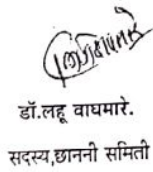 डॉ.लहू वाघमारे.
सदस्य,छाननी समिती